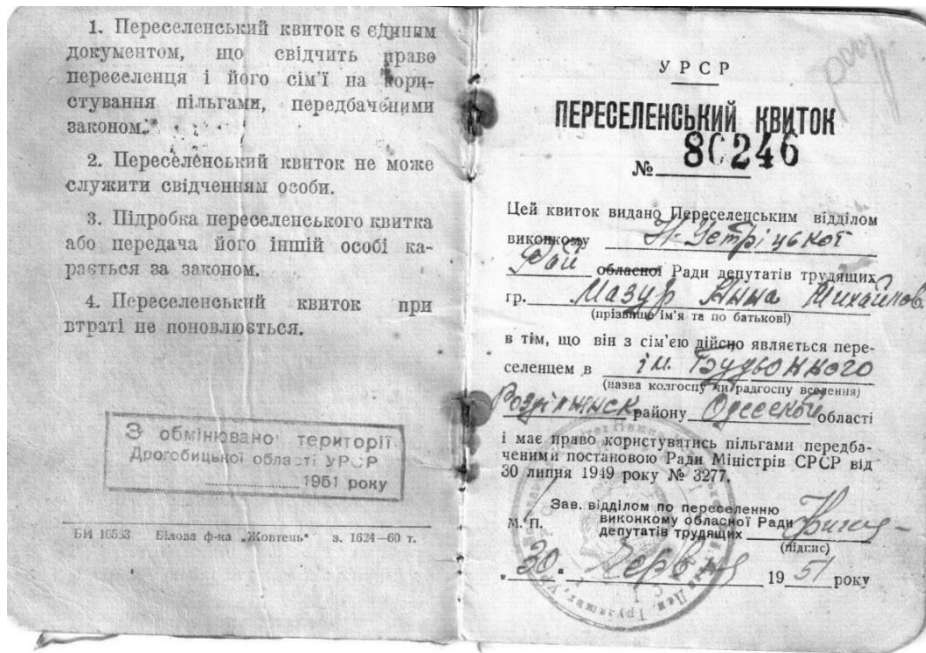 1. Переселенський квиток є єдиним
документом, що свідчить право
переселенця і його сім'ї на кори-
стування пільгами, передбаченими
законом.
2. Переселенський квиток не може
служити свідченням особи.
3. Підробка переселенського квитка
або передача його іншій особі ка-
рається за законом.
4. Переселенський квиток при
втраті не поновлюється.
З обмінювано території
Дрогобицької області УРСР
1951 року
БИ 10533 Білова ф-ка „Жовтень" з. 1624—60 т.
УРСР
ПЕРЕСЕЛЕНСЬКИЙ КВИТОК
№ 80246
Цей квиток видано Переселенським відділом
виконкому Н-Устріцької
Рай обласної Ради депутатів трудящих
гр. Мазур Анна Михайлов.
(прізвище ім'я та по батькові)
в тім, що він з сім'єю дійсно являється пере-
селенцем в ім. Будьонного
(назва колгоспу чи радгоспу вселення)
Роздільнянськ району Одеської області
і має право користуватись пільгами передба-
ченими постановою Ради Міністрів СРСР від
30 липня 1949 року № 3277.
Зав. відділом по переселенню
виконкому обласної Ради
депутатів трудящих
(підпис)
М. П.
„30" червня 1951 року